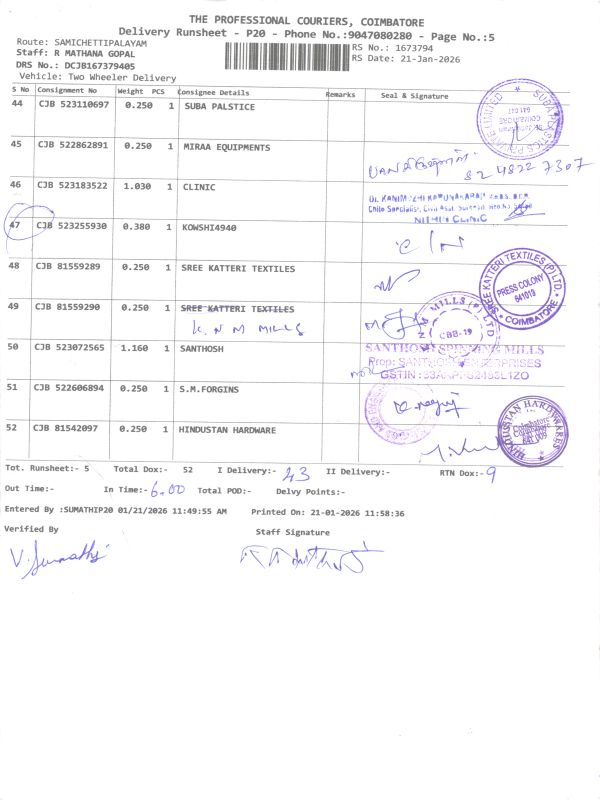 THE PROFESSIONAL COURIERS, COIMBATORE
Delivery Runsheet - P20 - Phone No.:9047080280 - Page No.:5
Route: SAMICHETTIPALAYAM
Staff: R MATHANA GOPAL
DRS No.: DCJB167379405
Vehicle: Two Wheeler Delivery
RS No.: 1673794
RS Date: 21-Jan-2026
S No Consignment No Weight PCS Consignee Details Remarks Seal & Signature
44 CJB 523110697 0.250 1 SUBA PALSTICE
45 CJB 522862891 0.250 1 MIRAA EQUIPMENTS
82 4822 7307
46 CJB 523183522 1.030 1 CLINIC
CLINIC
47 CJB 523255930 0.380 1 KOWSHI4940
48 CJB 81559289 0.250 1 SREE KATTERI TEXTILES
SREE KATTERI TEXTILES (P) LTD. COIMBATORE
PRESS COLONY
641019
49 CJB 81559290 0.250 1 SREE KATTERI TEXTILES
K. N M MILLS
MILLS (P) LTD
CBE-19
50 CJB 523072565 1.160 1 SANTHOSH
SANTHOSH SPINNING MILLS
Prop: SANTHOSH ENTERPRISES
51 CJB 522606894 0.250 1 S.M.FORGINS
52 CJB 81542097 0.250 1 HINDUSTAN HARDWARE
HINDUSTAN HARDWARES
Coimbatore
641 009
Tot. Runsheet:- 5 Total Dox:- 52 I Delivery:- 43 II Delivery:- RTN Dox:- 9
Out Time:- In Time:- 6.00 Total POD:- Delvy Points:-
Entered By :SUMATHIP20 01/21/2026 11:49:55 AM Printed On: 21-01-2026 11:58:36
Verified By Staff Signature
V. Sumathi